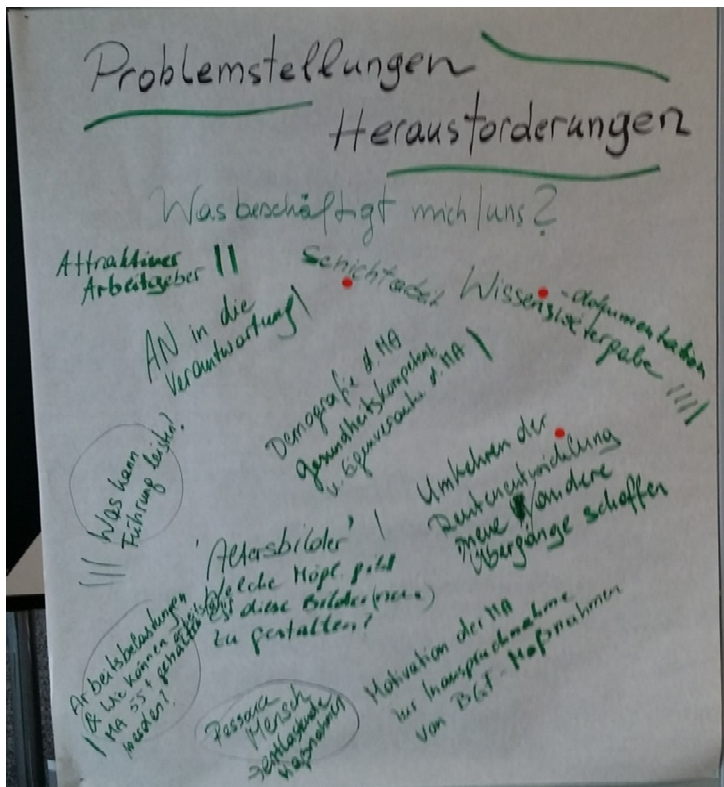 Problemstellungen
Herausforderungen
Was beschäftigt mich/uns?
Attraktiver
Arbeitgeber ||
Schichtarbeit
Wissensweitergabe
-dokumentation
||||
AN in die
Verantwortung |
Demografie d. MA
gesundheitskompetent
u. Eigenverantw. d. MA |
Was kann
Führung leisten?
|||
Umkehren der
Rentenentwicklung
neue / andere
Übergänge schaffen
'Altersbilder' |
Welche Mögl. gibt
es diese Bilder (neu)
zu gestalten?
Arbeitsbelastungen
& Wie können
MA 55+ gehalten
werden?
|
Passara
Mensch
Maßnahmen
Motivation der MA
zur Inanspruchnahme
von BGF-Maßnahmen